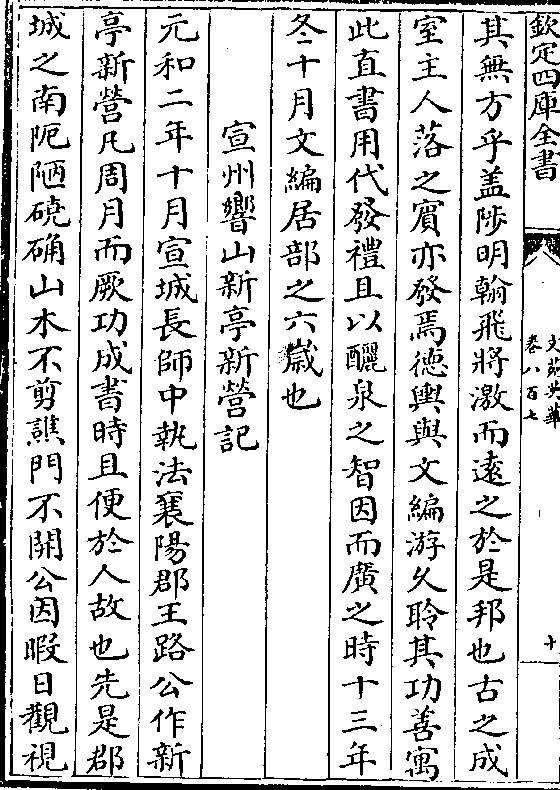 欽定四庫全書
文苑英華
卷八百七
十
其無方乎盖陟明翰飛將激而遠之於是邦也古之成
室主人落之賔亦發焉德輿與文編游久聆其功善寓
此直書用代發禮且以釃泉之智因而廣之時十三年
冬十月文編居部之六嵗也
宣州響山新亭新營記
元和二年十月宣城長師中執法襄陽郡王路公作新
亭新營凡周月而厥功成書時且便於人故也先是郡
城之南阨陋磽确山木不剪譙門不開公因暇日觀視